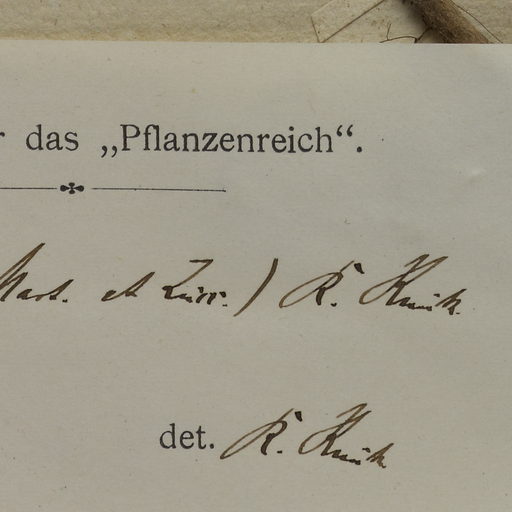 r das „Pflanzenreich“.
Mart. et Zucc.) R. Knuth
det. R. Knuth